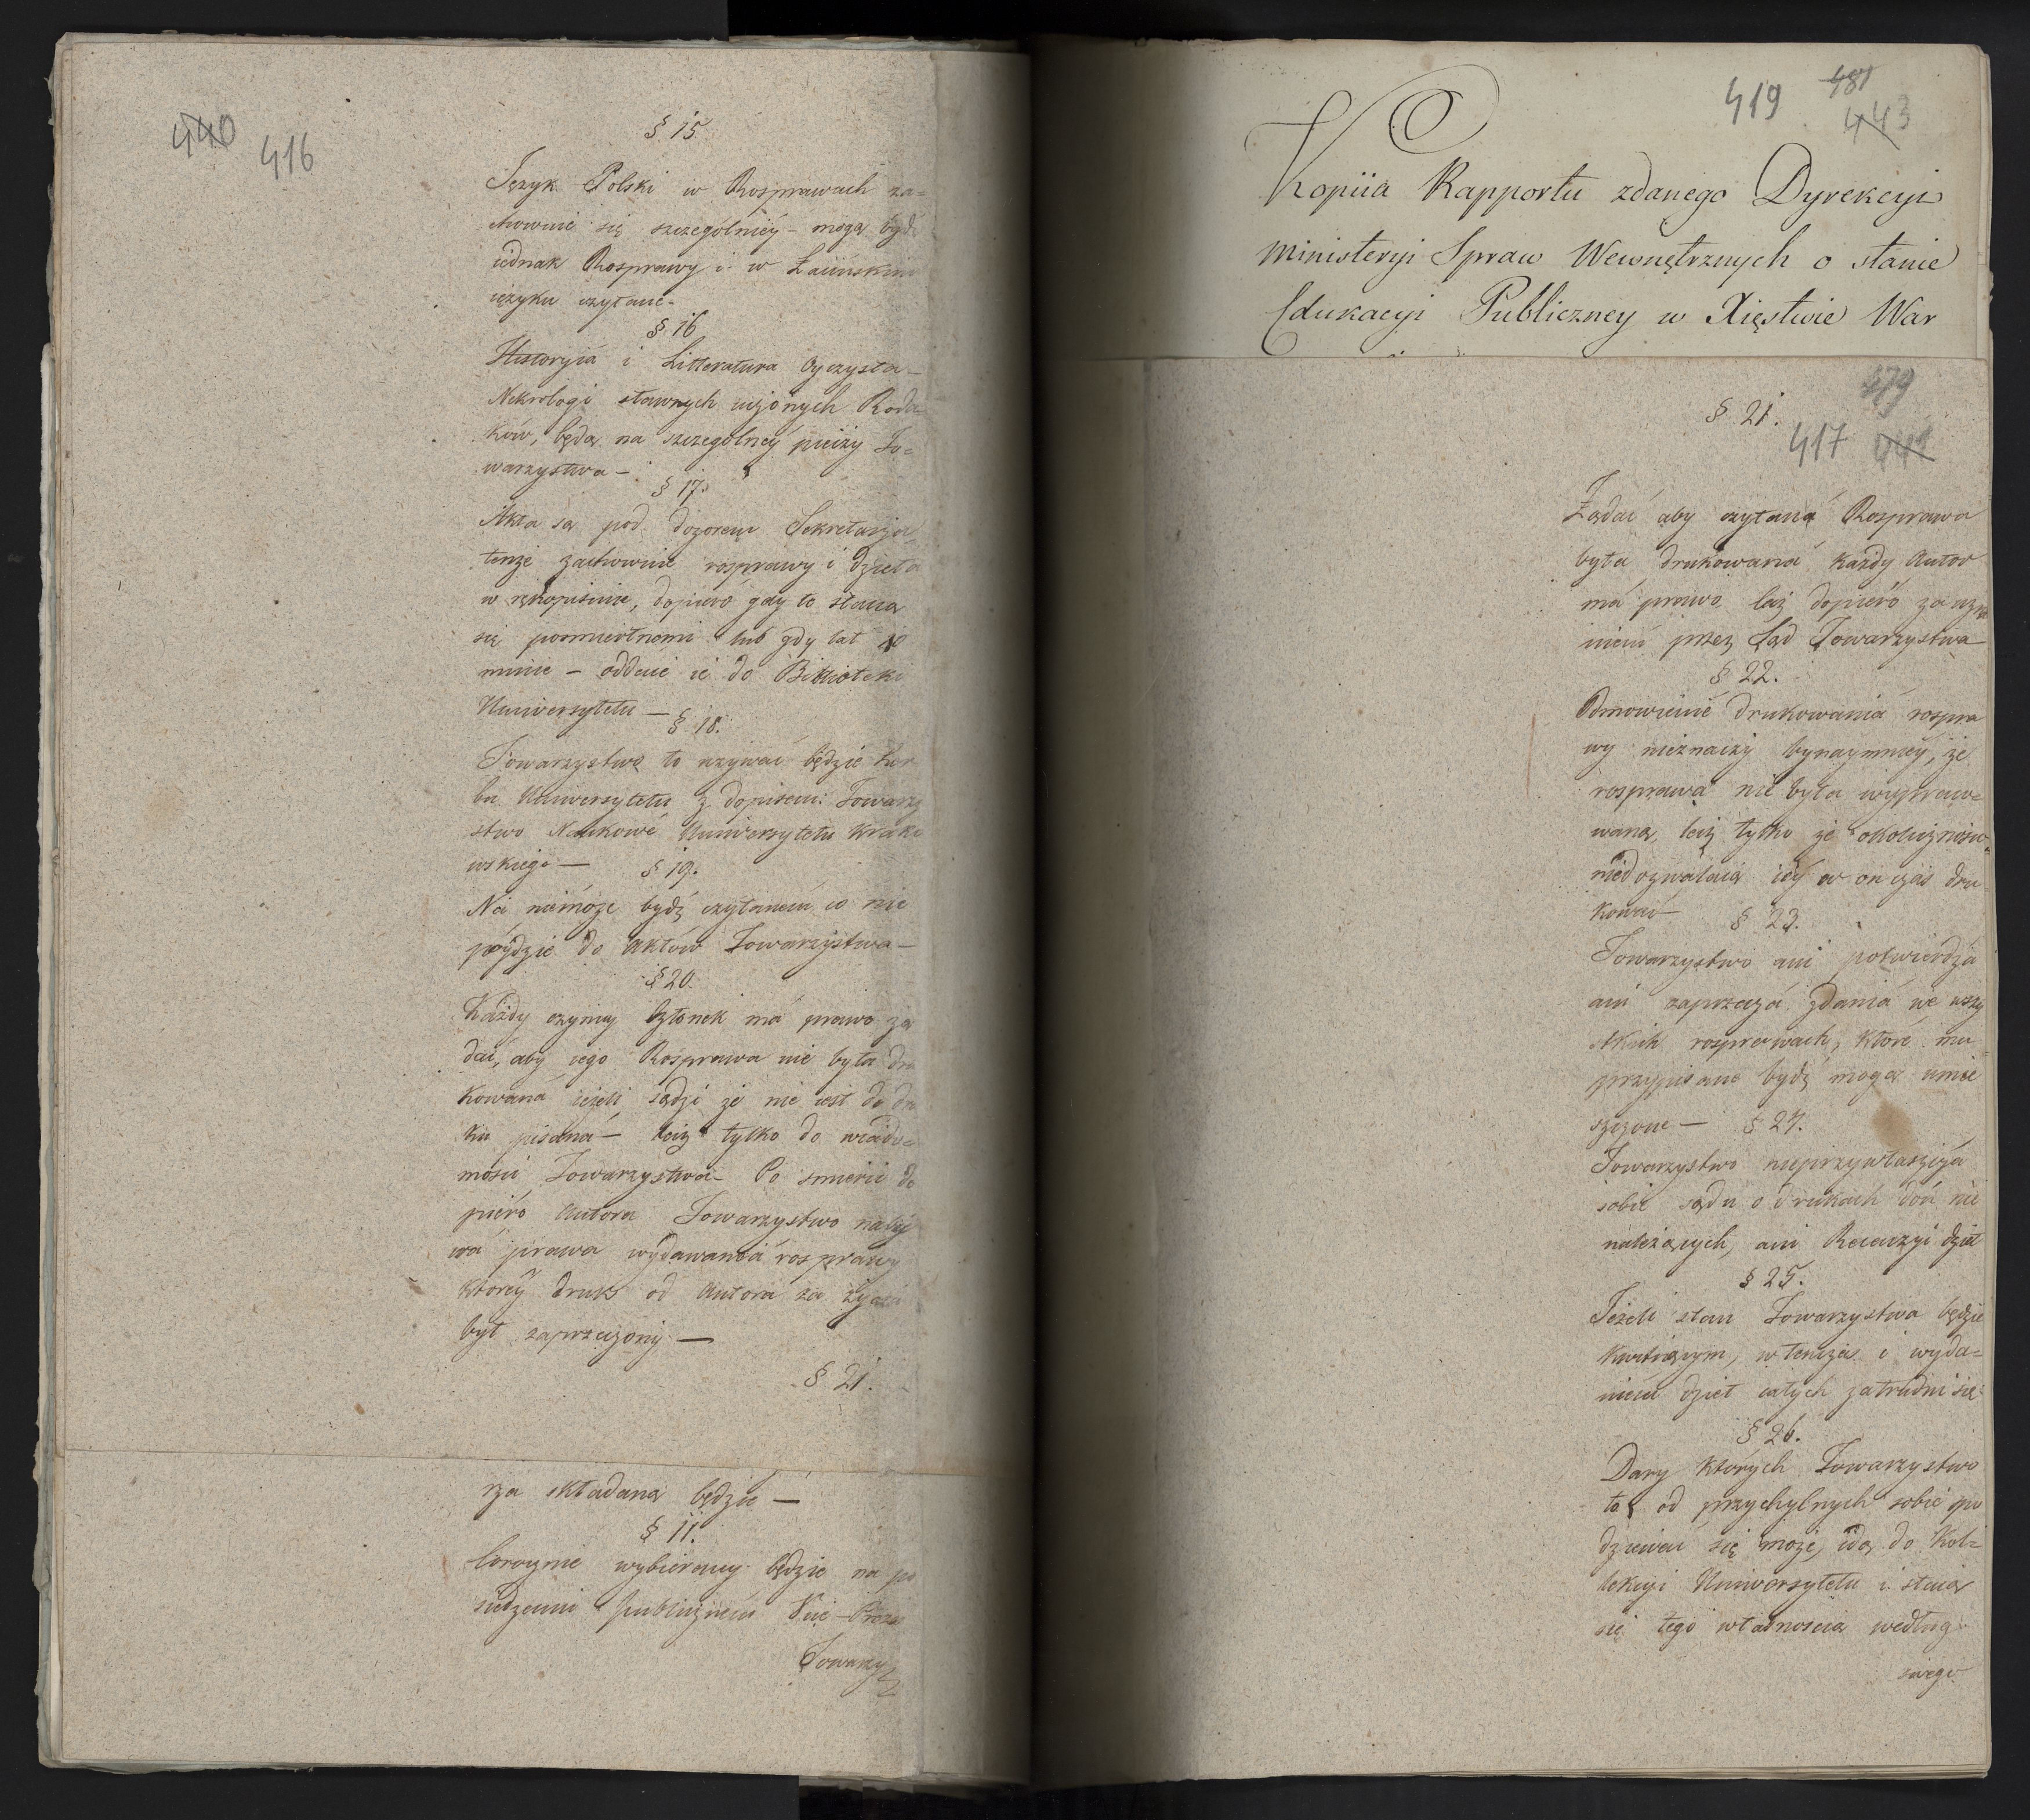 440 416
§ 15
Język Polski w Rosprawach za=
chowuie się szczególniéy – mogą bydź
iednak Rosprawy i w Łacińskim
ięzyku czytane –
§ 16
Historyia i Litteratura Oyczysta –
Nekrologi sławnych uczonych Roda
ków, będą na szczególnéy pieczy To=
warzystwa –
§ 17.
Akta są pod dozorem Sekretarza
tenże zachowuie rosprawy i dzieła
w rękopismie, dopiero gdy te staną
się posmiertnemi lub gdy lat 10
minie – oddaie ie do Biblioteki
Uniwersytetu –
§ 18.
Towarzystwo to używać będzie her
bu Uniwersytetu z dopisem: Towarzy
stwo Naukowé Uniwersytetu Krako
wskiego –
§ 19.
Nic niemoże bydź czytaném co nie
póydzie do Aktów Towarzystwa –
§ 20.
Każdy czynny Członek má prawo żą
dać, aby iego Rosprawa nie była dru
kowaná ieżeli sądzi że nie iest do dru
ku pisaná – lecz tylko do wiado=
mości Towarzystwa – Po śmierci do
piéro Autora Towarzystwo naby
wá prawa wydawaniá rosprawy
któréy druk od Autora za życia
był zaprzeczony –
§ 21.
rza składaną będzie –
§ 11.
Corocznie wybierany będzie na po
siedzeniu publiczném Vice-Prezes
Towarzy
419 481
443
Kopiia Rapportu zdanego Dyrekcyi
Ministeryi Spraw Wewnętrznych o stanie
Edukacyi Publiczney w Xięstwie War
479
§ 21.
417 441
Żądać aby czytaná Rosprawa
była drukowaná każdy Autor
má prawo lecz dopiéro za uzna
niem przez Sąd Towarzystwa
§ 22.
Odmowienié drukowaniá rospra
wy nieznaczy bynaymniéy, że
rosprawa nie była wypraco=
waną, lecz tylko że okoliczności
niedozwalaią iéy w on czas dru
kować –
§ 23.
Towarzystwo ani potwierdzá
ani zaprzeczá zdaniá we wszy
stkich rosprawach, któré mu
przypisane bydź mogą umie
szczone –
§ 24.
Towarzystwo nieprzywłaszczá
sobie sądu o drukach doń nie
należących, ani Recenzyi dzieł
§ 25.
Jeżeli stan Towarzystwa będzie
kwitnącym, wtenczas i wyda=
niem dzieł całych zatrudni się
§ 26.
Dary których Towarzystwo
to od przychylnych sobie spo
dziewać się może, idą do Kol=
lekcyi Uniwersytetu i staią
się tego własnością według
swego